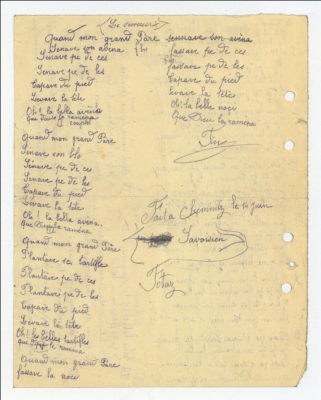 (Le semeur)
Quand mon grand Père
Senave son avena
Senave pe de ces
Senave pe de les
Tapave du pied
Levave la tête
Oh! la bella avena
Que Dieu la ramena
Quand mon grand Père
Senave son blo
Senave pe de ces
Senave pe de les
Tapave du pied
Levave la tête
Oh! la bella avena
Que Dieu la ramena
Quand mon grand Père
Plantave ses tartifles
Plantave pe de ces
Plantave pe de les
Tapave du pied
Levave la tête
Oh! les belles tartifles
que Dieu le ramena
Quand mon grand Père
fassave la noce
fassave pe de ces
fassave pe de les
Tapave du pied
Levave la tête
Oh! la belle noce
Que Dieu la ramena
Fin
Fait à Chemnitz le 14 juin
Savoisien